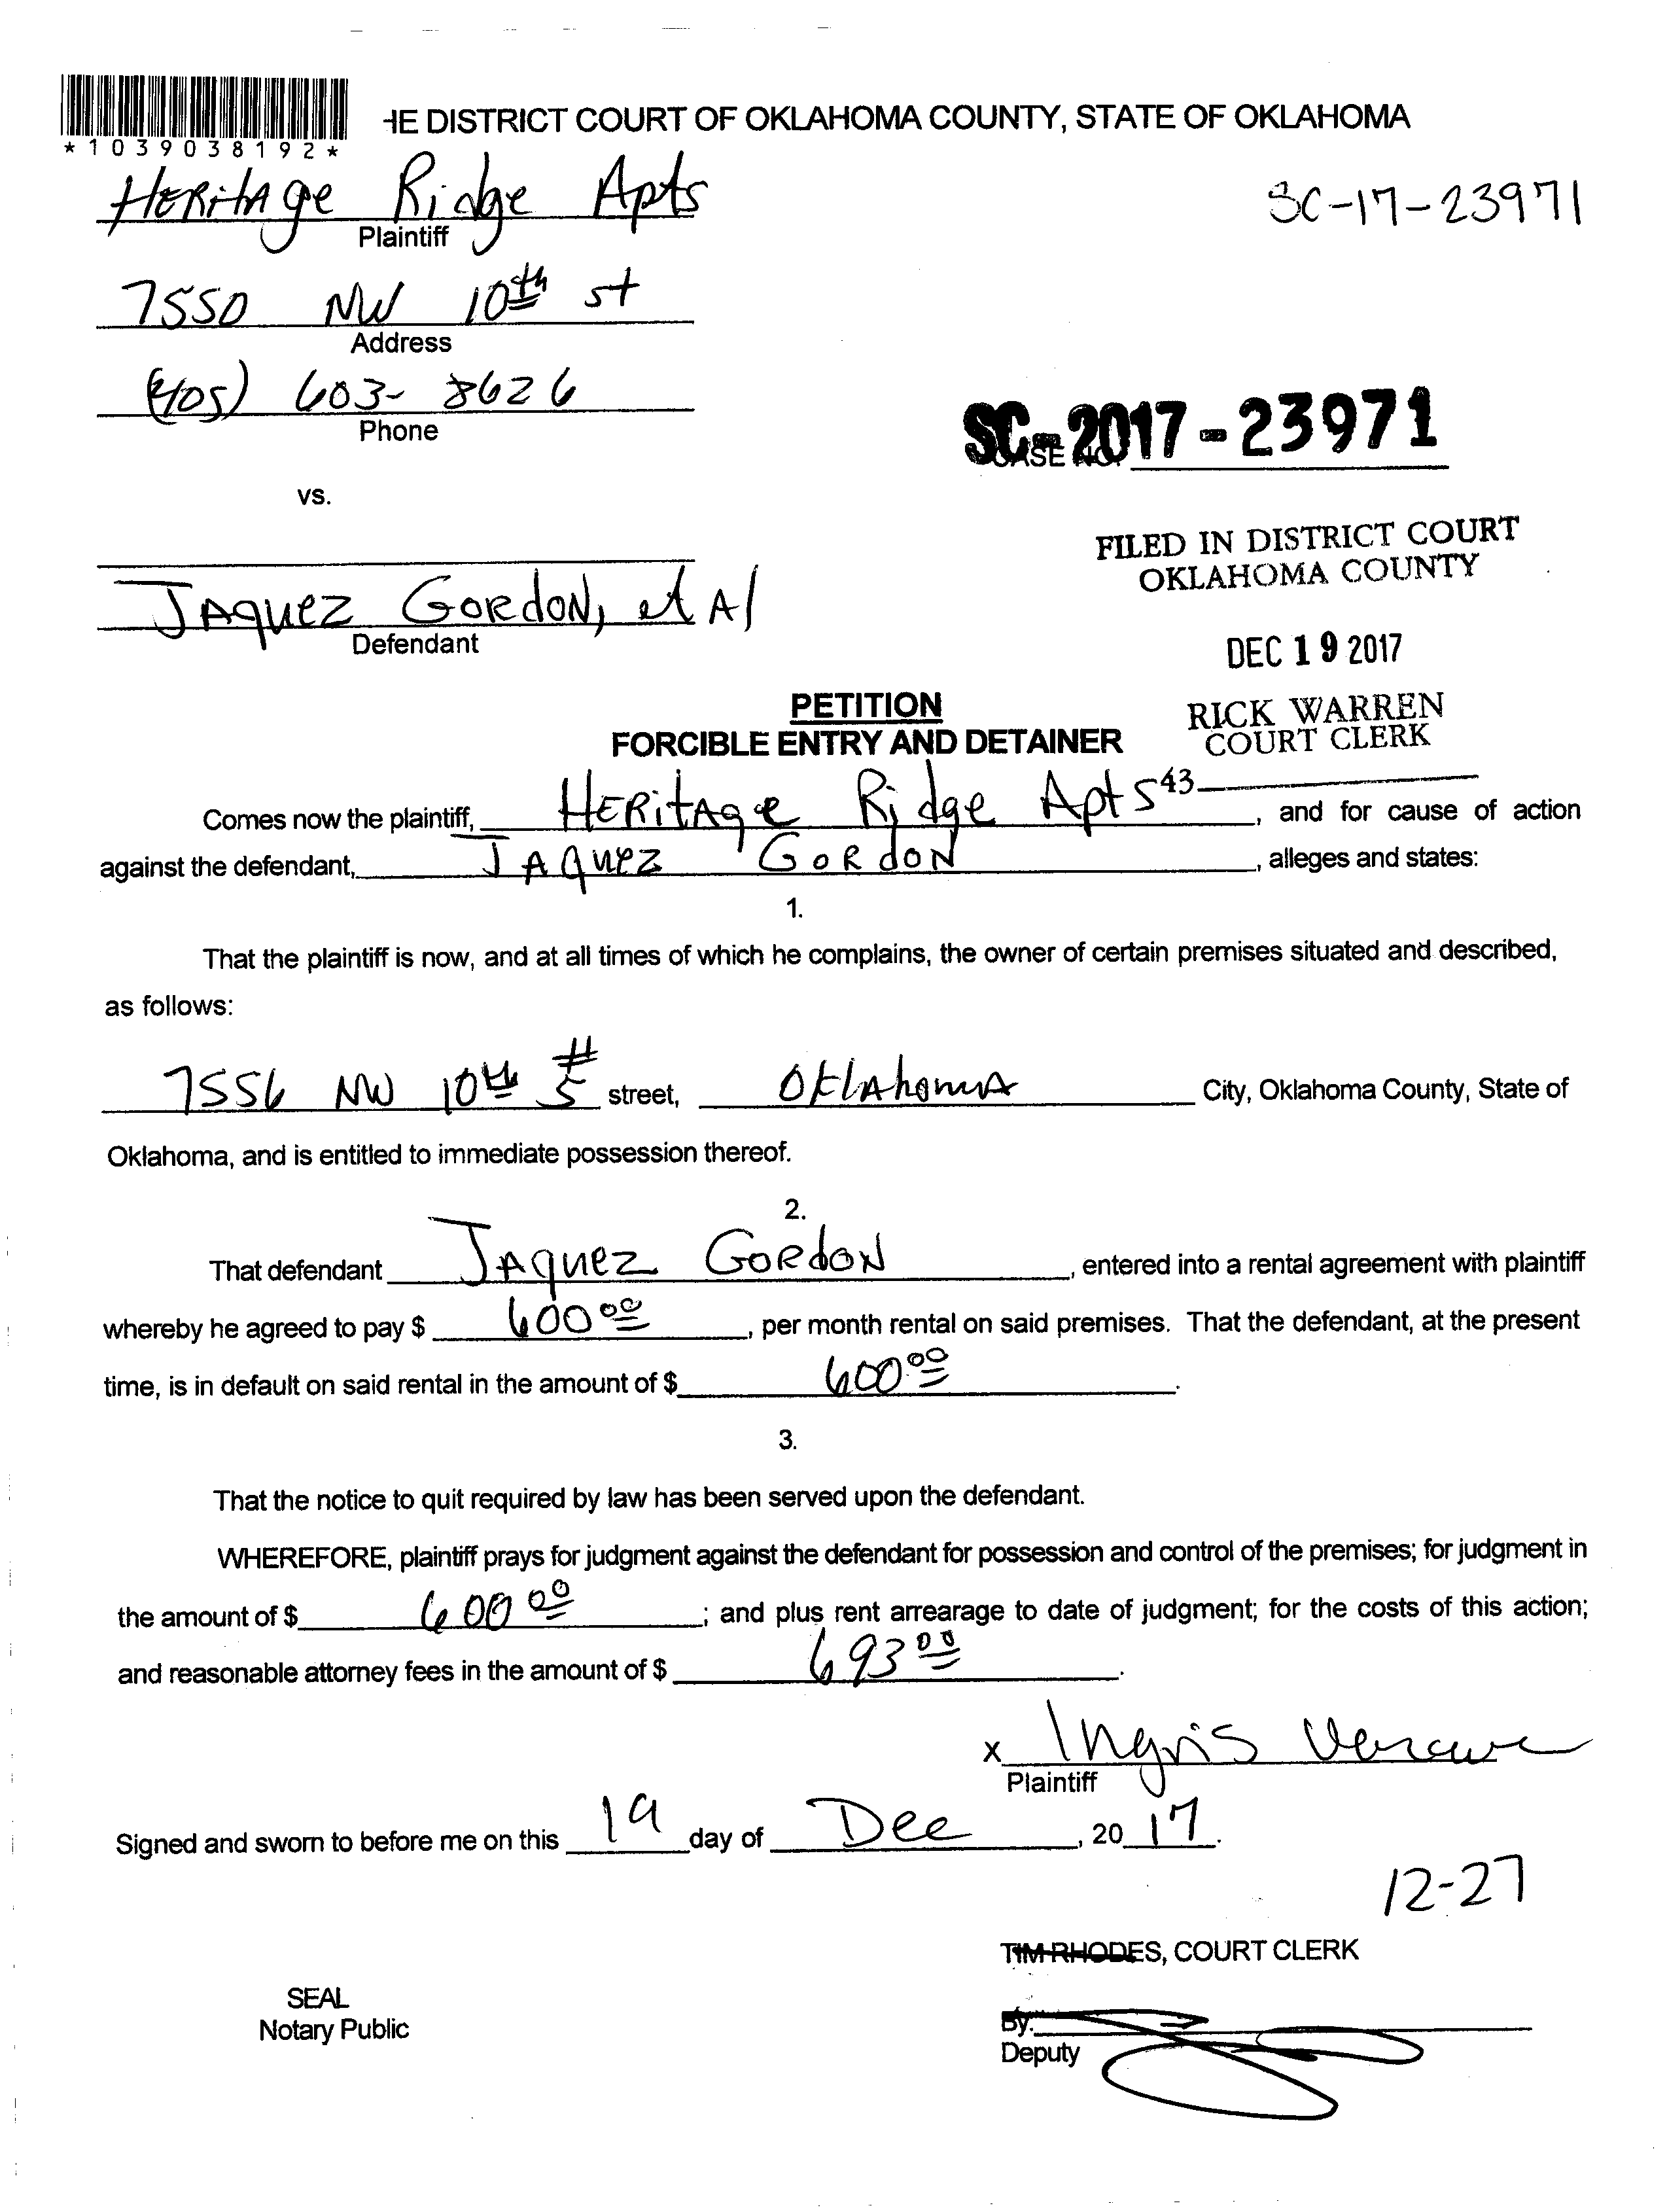 *1039038192*
HE DISTRICT COURT OF OKLAHOMA COUNTY, STATE OF OKLAHOMA
HERitAge Ridge Apts
Plaintiff
SC-17-23971
7550 NW 10th st
Address
(405) 603-8626
Phone
SC-2017-23971
CASE NO.
vs.
FILED IN DISTRICT COURT
OKLAHOMA COUNTY
JAquez GoRdoN, et Al
Defendant
DEC 19 2017
PETITION
RICK WARREN
FORCIBLE ENTRY AND DETAINER
COURT CLERK
43
Comes now the plaintiff, HERitAge Ridge Apts, and for cause of action
against the defendant, JAquez GoRdoN, alleges and states:
1.
That the plaintiff is now, and at all times of which he complains, the owner of certain premises situated and described,
as follows:
7556 NW 10th #5 street, OklAhomA City, Oklahoma County, State of
Oklahoma, and is entitled to immediate possession thereof.
2.
That defendant JAquez GoRdoN, entered into a rental agreement with plaintiff
whereby he agreed to pay $ 600 00, per month rental on said premises. That the defendant, at the present
time, is in default on said rental in the amount of $ 600 00.
3.
That the notice to quit required by law has been served upon the defendant.
WHEREFORE, plaintiff prays for judgment against the defendant for possession and control of the premises; for judgment in
the amount of $ 600 00; and plus rent arrearage to date of judgment; for the costs of this action;
and reasonable attorney fees in the amount of $ 693 00.
x Ingris
Plaintiff
Signed and sworn to before me on this 19 day of Dec, 2017.
12-27
TIM RHODES, COURT CLERK
SEAL
Notary Public
By:
Deputy